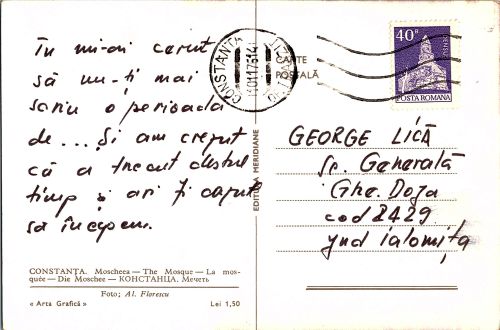 Tu mi-ai cerut
să nu-ți mai
scriu o perioadă
de... Și am crezut
că a trecut destul
timp și ai
să începem.
CONSTANȚA. Moscheea — The Mosque — La mos-
quée — Die Moschee — КОНСТАНЦА. Мечеть
Foto; Al. Florescu
« Arta Grafică »
Lei 1,50
EDITURA MERIDIANE
CONSTANȚA
CARTE
POȘTALĂ
40B
DENSUȘ
POSTA ROMANA
GEORGE LICĂ
Șc. Generală
Ghe. Doja
cod 8429
jud ialomița